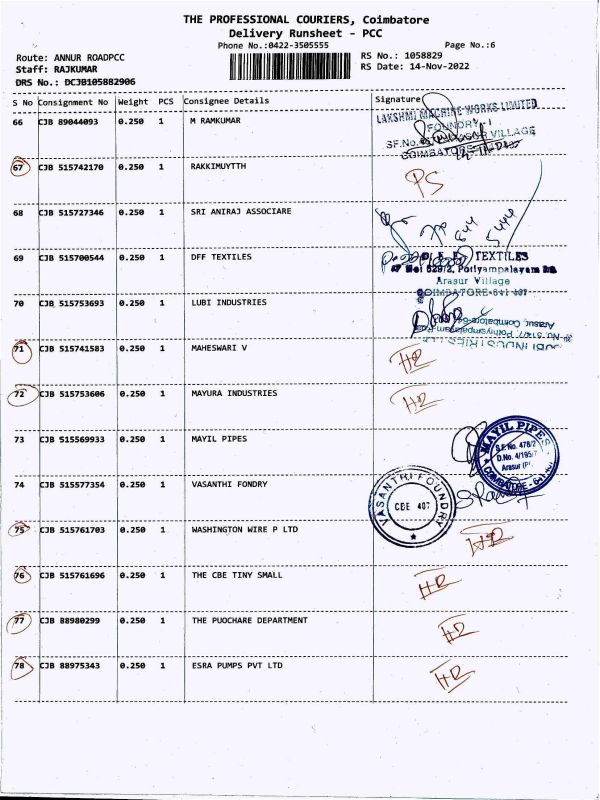 THE PROFESSIONAL COURIERS, Coimbatore
Delivery Runsheet - PCC
Phone No.:0422-3505555 Page No.:6
Route: ANNUR ROADPCC RS No.: 1058829
Staff: RAJKUMAR RS Date: 14-Nov-2022
DRS No.: DCJB105882906
S No Consignment No Weight PCS Consignee Details Signature
66 CJB 89044093 0.250 1 M RAMKUMAR
LAKSHMI MACHINE WORKS LIMITED
FOUNDRY - I
VILLAGE
67 CJB 515742170 0.250 1 RAKKIMUYTTH PS
68 CJB 515727346 0.250 1 SRI ANIRAJ ASSOCIARE
69 CJB 515700544 0.250 1 DFF TEXTILES
TEXTILES
Pottyampalayam
Arasur Village
COIMBATORE-641 407
70 CJB 515753693 0.250 1 LUBI INDUSTRIES
Arasur, Coimbatore-64
71 CJB 515741583 0.250 1 MAHESWARI V HR
72 CJB 515753606 0.250 1 MAYURA INDUSTRIES HR
73 CJB 515569933 0.250 1 MAYIL PIPES
MAYIL PIPES
S.F. No. 478/2
D.No. 4/195/7
Arasur (P
COIMBATORE - 641 407
74 CJB 515577354 0.250 1 VASANTHI FONDRY
VASANTHI FOUNDRY
CBE 407
75 CJB 515761703 0.250 1 WASHINGTON WIRE P LTD HR
76 CJB 515761696 0.250 1 THE CBE TINY SMALL HR
77 CJB 88980299 0.250 1 THE PUOCHARE DEPARTMENT HR
78 CJB 88975343 0.250 1 ESRA PUMPS PVT LTD HR